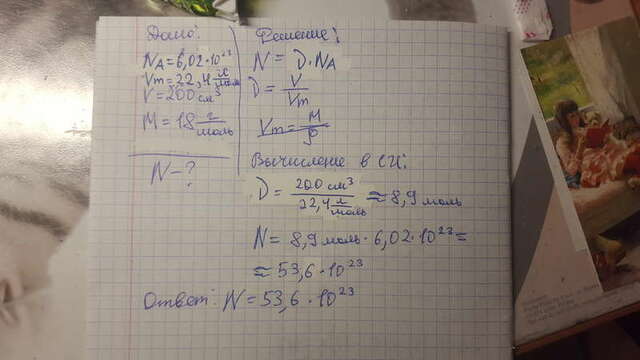 Дано:
NA = 6,02·10²³
Vm = 22,4 л/моль
V = 200 см³
M = 18 г/моль
N - ?
Решение:
N = D·NA
D = V/Vm
Vm = M/ρ
Вычисление в СИ:
D = 200 см³/22,4 л/моль ≈ 8,9 моль
N = 8,9 моль · 6,02·10²³ =
≈ 53,6·10²³
Ответ: N = 53,6·10²³